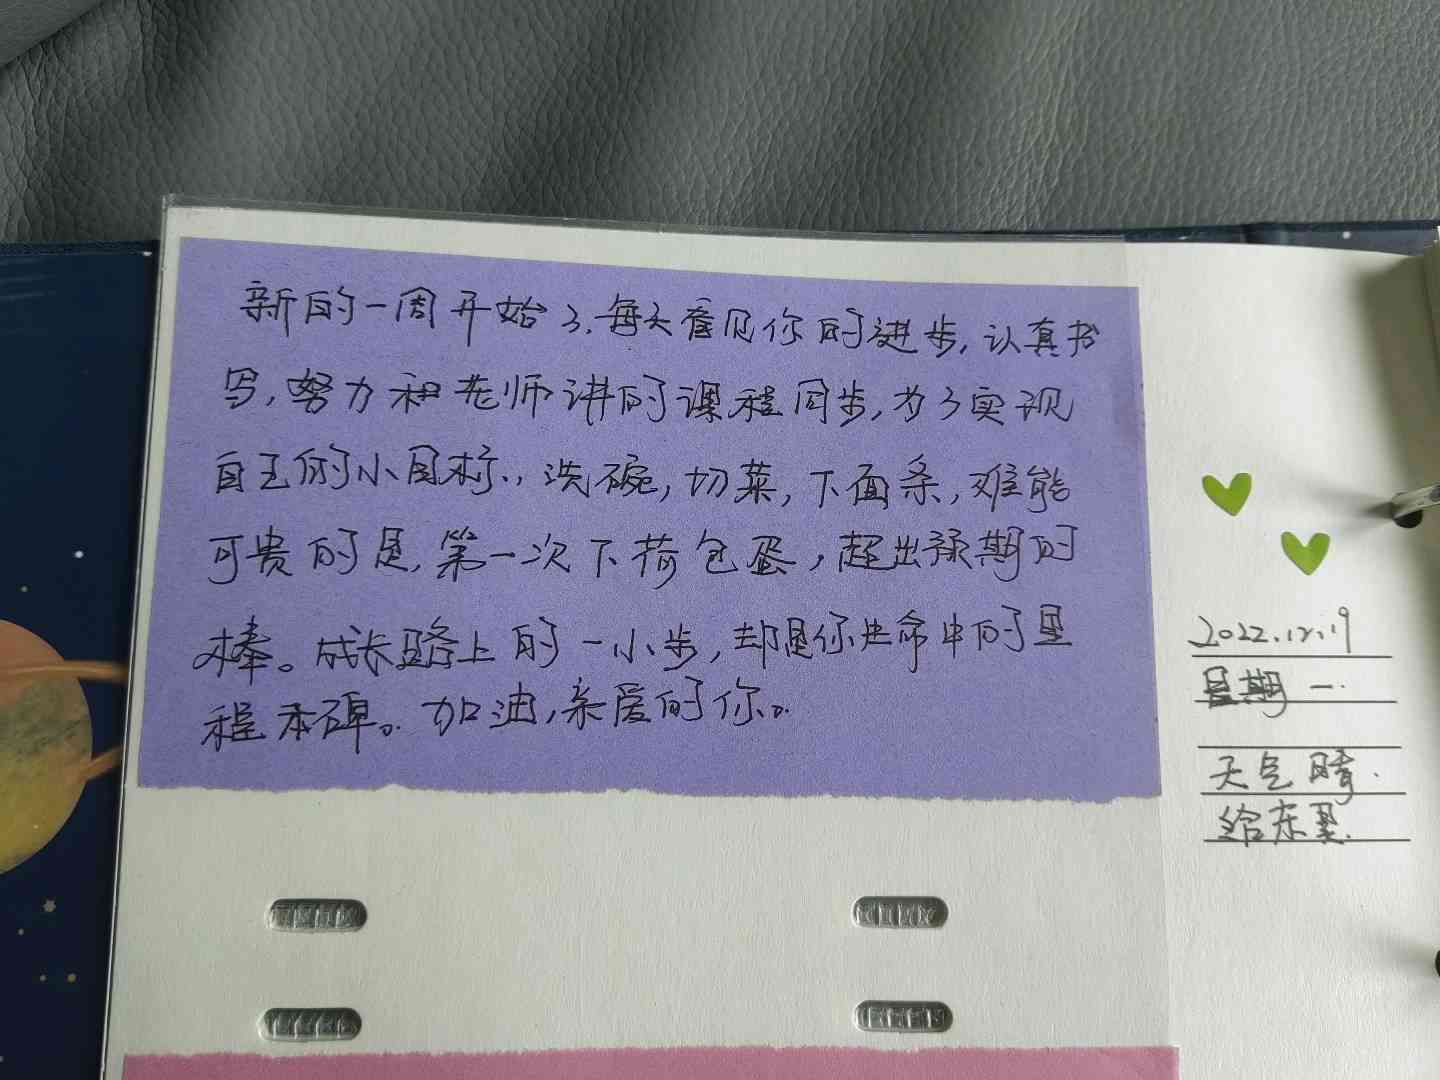 新的一周开始了,每天看见你的进步,认真书
写,努力和老师讲的课程同步,为了实现
自主的小目标,洗碗,切菜,下面条,难能
可贵的是,第一次下荷包蛋,超出预期的
棒。成长路上的一小步,却是你生命中的里
程本碑。加油,亲爱的你。
2022.12.19
星期一.
天气晴.
给东